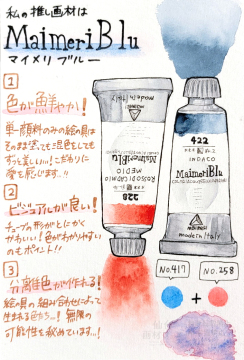 私の推し画材は
MaimeriBlu
マイメリブルー
1
色が鮮やか!
単一顔料のみの絵の具は
そのまま塗っても混色しても
ずっと美しい…!こだわりに
愛を感じます…!!
2
ビジュアルが良い!
チューブの形がとにかく
かわいい!色がわかりやすい
のもポイント!!
3
分離色が作れる!
絵の具の組み合わせによって
生まれる色たち…!無限の
可能性を秘めています…!
made in Italy
MaimeriBlu
ROSSO CADMIO
MEDIO
228
422
INDACO
MaimeriBlu
made in Italy
No.417
No.258
+